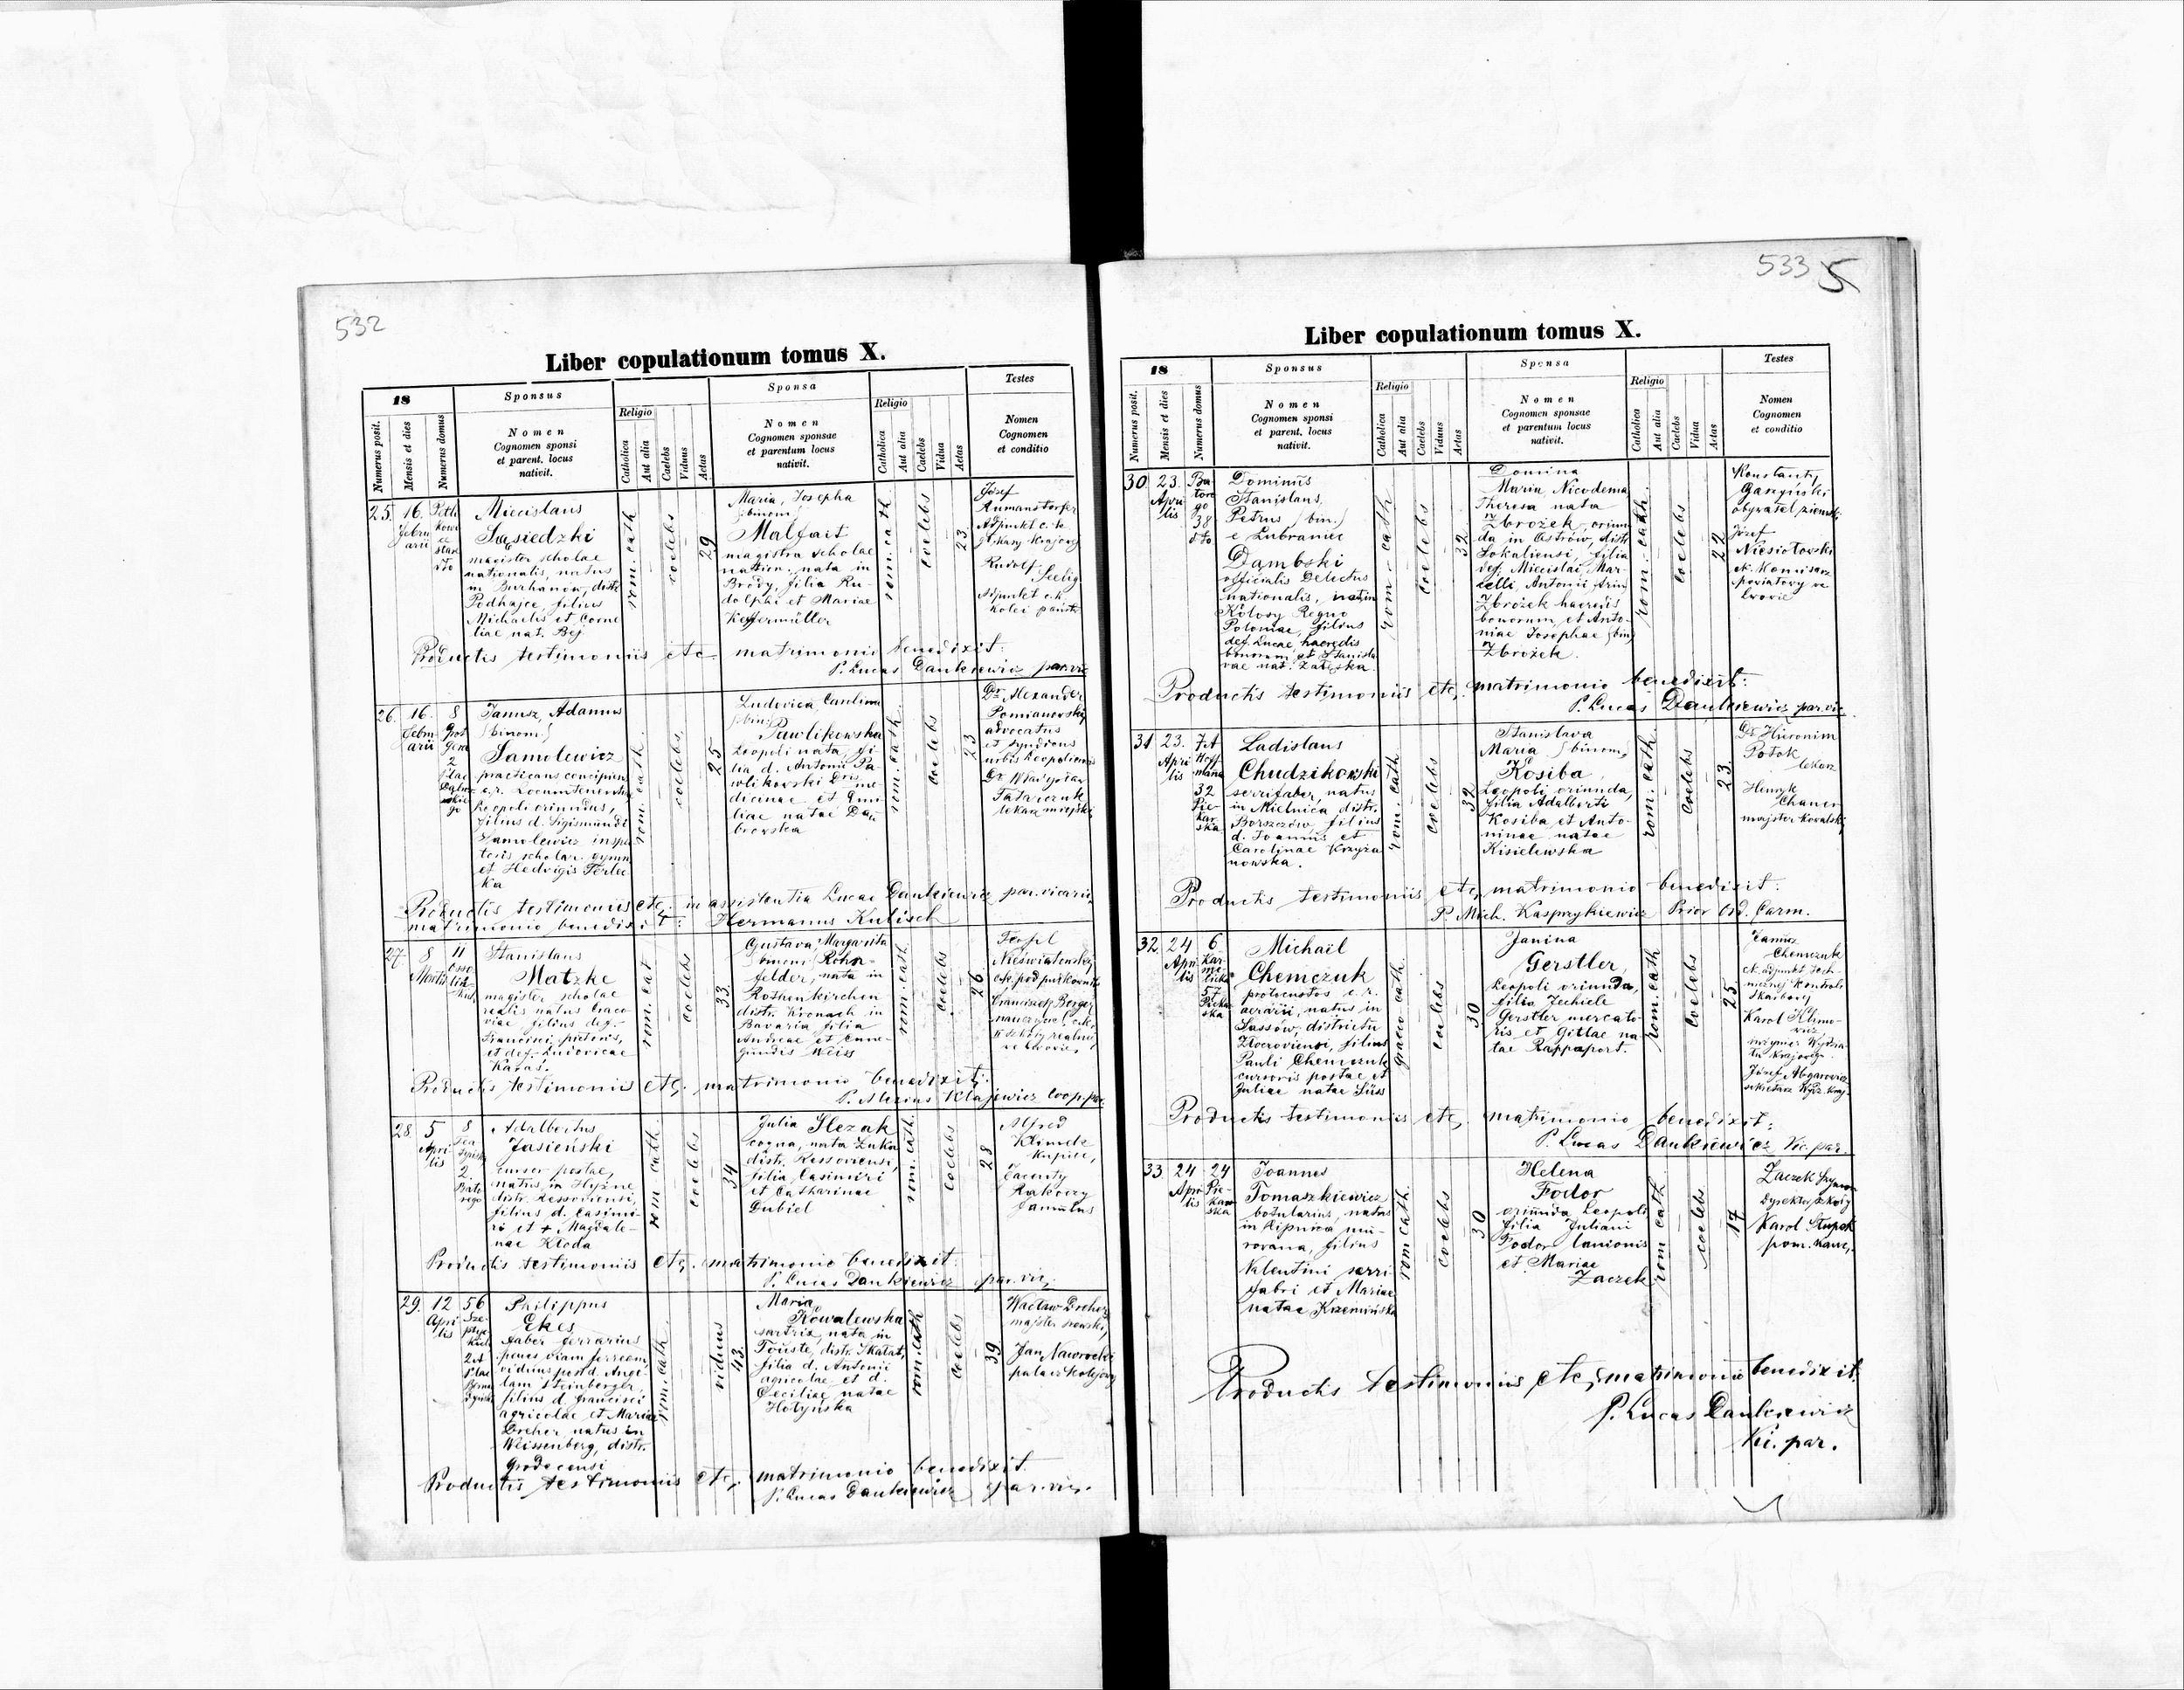 532
Liber copulationum tomus X.
18
Sponsus
Sponsa
Testes
Numerus posit.
Mensis et dies
Numerus domus
Nomen
Cognomen sponsi
et parent. locus
nativit.
Religio
Catholica
Aut alia
Caelebs
Viduus
Aetas
Nomen
Cognomen sponsae
et parentum locus
nativit.
Religio
Catholica
Aut alia
Caelebs
Vidua
Aetas
Nomen
Cognomen
et conditio
25.
16.
Febru
arii
Miecislaus
Sąsiedzki
magister scholae
nationalis, natus
in Burkanów, distr.
Podhajce, filius
Michaelis et Corne
liae nat. Bej
rom. cath
coelebs
29
Maria, Josepha
(binom)
Malfait
magistra scholae
nation., nata in
Brody, filia Ru-
dolphi et Mariae
Kessermüller
rom. cath
coelebs
23
Józef
Rumanstorfer
Adjunkt c. k.
gł. Kasy Krajowej
Rudolf
Seelig
Adjunkt c. k.
Kolei państ.
Productis testimoniis etc matrimonio benedixit:
P. Lucas Dankiewicz par. vic
26.
16.
Febru
arii
8
2
Janusz, Adamus
(binom)
Samolewicz
practicans concipien.
c. r. Locumtenent.
Leopoli oriundus,
filius d. Sigismundi
Samolewicz inspec
toris scholar. gymn
et Hedvigis Terlec
ka
rom. cath.
coelebs
25
Ludovica, Carolina
(bin.)
Pawlikowska
Leopoli nata, fi-
lia d. Antonii Pa-
wlikowski Dris me-
dicinae et Emi-
liae natae Dą-
browska
rom. cath.
coelebs
23
Dr. Alexander
Pomianowski
advocatus
et syndicus
urbis Leopoliens
Dr. Władysław
Tatarczuk
lekarz miejski
Productis testimoniis etc. in assistentia Lucae Dankiewicz par. vicarii
matrimonio benedixit: Hermannus Kubisch
27.
8
Martii
11
Osso
liń
skich
Stanislaus
Matzke
magister scholae
realis natus Craco
viae filius def.
Francisci, pictoris,
et def. Ludovicae
Karaś.
rom. cat
coelebs
33
Gustava, Margarita
(binom) Rohn-
felder, nata in
Rothenkirchen
distr. Kronach in
Bavaria filia
Andreae et Cune-
gundis Weiss
rom. cath
coelebs
26
Teofil
Nieświatowski
c. k. podpułkownik
Franciszek Berger
nauczyciel c. k.
II szkoły realnej
we Lwowie,
Productis testimoniis etc. matrimonio benedixit:
P. Alexius Klajewicz coop. par
28.
5
Apri
lis
8
2
Bato
rego
Adalbertus
Jasieński
cursor postae,
natus in Hyżne
distr. Ressoviensi,
filius d. Casimi-
ri et + Magdale-
nae Kłoda
rom. cath.
coelebs
34
Julia Ślezak
coqua, nata Łuka
distr. Ressoviensi,
filia Casimiri
et Catharinae
Dubiel
rom. cath.
coelebs
28
Alfred
Klimek
Kupiec,
Jacenty
Rakoczy
famulus
Productis testimoniis etc. matrimonio benedixit:
P. Lucas Dankiewicz par. vic.
29.
12
Apri
lis
56
Sze-
ptyc
kich
Philippus
Ekes
faber ferrarius
penes viam ferream,
viduus post d. Ange-
lam Steinberger,
filius d. Francisci
agricolae et Mariae
Dreher, natus in
Weissenberg, distr.
Grodecensi
rom. cath.
viduus
43.
Maria
Kowalewska
sartrix, nata in
Touste, distr. Skałat,
filia d. Antonii
agricolae et d.
Ceciliae natae
Hotyńska
rom. cath
coelebs
39
Wacław Drehez
majster szewski,
Jan Nawrocki
palacz kolejowy
Productis testimoniis etc. matrimonio benedixit.
P. Lucas Dankiewicz par. vic.
533
5
Liber copulationum tomus X.
18
Sponsus
Sponsa
Testes
Numerus posit.
Mensis et dies
Numerus domus
Nomen
Cognomen sponsi
et parent. locus
nativit.
Religio
Catholica
Aut alia
Caelebs
Viduus
Aetas
Nomen
Cognomen sponsae
et parentum locus
nativit.
Religio
Catholica
Aut alia
Caelebs
Vidua
Aetas
Nomen
Cognomen
et conditio
30.
23.
Apri
lis
Ba
tore
go
38
dto
Dominus
Stanislaus,
Petrus (bin.)
e Lubraniec
Dąmbski
officialis Delectus
nationalis, nat. in
Kołosy Regno
Poloniae, filius
def. Lucae, haeredis
bonorum et Stanisla
vae nat. Załęska.
rom. cath
coelebs
32
Domina
Maria Nicodema
Theresa nata
Zbrożek, oriun
da in Ostrów, distr.
Sokaliensi, filia
def. Miecislai, Mar-
celli, Antonii (trin)
Zbrożek haeredis
bonorum, et Anto-
niae Josephae (bin)
Zbrożek.
rom. cath.
coelebs
22
Konstanty
Garzyński
obywatel ziemski
Józef
Niesiołowski
ck. Komisarz
powiatowy we
Lwowie
Productis testimoniis etc. matrimonio benedixit:
P. Lucas Dankiewicz par. vic.
31
23.
Apri
lis
7 A
Hoff
mana
32
Pie-
kar
ska
Ladislaus
Chudzikowski
serrifaber, natus
in Mielnica distr.
Borszczów, filius
d. Joannis et
Carolinae Krzyża
nowska.
rom. cath
coelebs
32
Stanislava
Maria (binom)
Kosiba,
Leopoli oriunda,
filia Adalberti
Kosiba et Anto-
ninae natae
Kisielewska
rom. cath.
coelebs
23.
Dr. Hieronim
Potok
lekarz
Henryk
Chauer
majster kowalski
Productis testimoniis etc. matrimonio benedixit:
P. Mich. Kasprzykiewicz Prior Ord. Carm.
32.
24
Apri
lis
6
Kar
me
licka
57
Pieka
ska
Michaël
Chemczuk
protocnotos c. r.
aerarii, natus in
Sassów, districtu
Złoczoviensi, filius
Pauli Chemczuk
cursoris postae et
Juliae natae Süss
graeco cath.
coelebs
30
Janina
Gerstler,
Leopoli oriunda,
filia Zechiele
Gerstler mercato-
ris et Gitlae na-
tae Rappaport.
rom. cath
coelebs
25
Chemczuk
ck. adjunkt tech-
nicznej Kontroli
skarbowej
Karol Klimo-
wicz,
inżynier Wydzia-
łu Krajowego.
Józef Abgarowicz
sekretarz Wydz. Kraj.
Productis testimoniis etc. matrimonio benedixit:
P. Lucas Dankiewicz Vic. par.
33.
24
Apri
lis
24
Pie-
kar
ska
Joannes
Tomaszkiewicz
botularius, natus
in Lipnica mu-
rowana, filius
Valentini serri
fabri et Mariae
natae Krzemińska
rom cath.
coelebs
30
Helena
Fodor
oriunda Leopoli
filia Juliani
Fodor lanionis
et Mariae
Zaczek
rom cath.
coelebs
17
Zaczek Szymon
dyrektor szkoły
Karol Słupek
pom. kanc.
Productis testimoniis etc, matrimonio benedixit.
P. Lucas Dankiewicz
Vic. par.